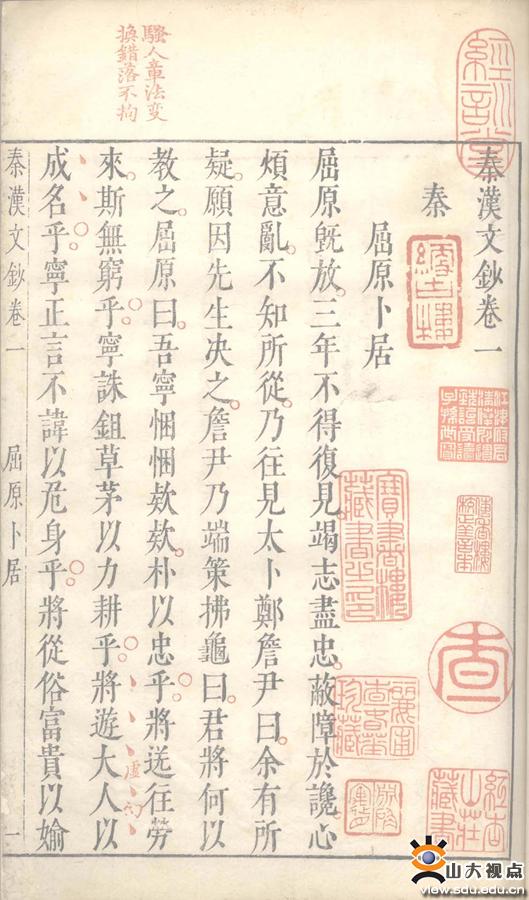 騷人章法變
換錯落不拘
秦漢文鈔卷一
秦
屈原卜居
屈原旣放三年不得復見竭志盡忠蔽障於讒心
煩意亂不知所從乃往見太卜鄭詹尹曰余有所
疑願因先生决之詹尹乃端策拂龜曰君將何以
教之屈原曰吾寧悃悃欵欵朴以忠乎將送往勞
來斯無窮乎寧誅鉏草茅以力耕乎將遊大人以
成名乎寧正言不諱以危身乎將從俗富貴以媮
秦漢文鈔卷一
屈原卜居
一
山大视点
view.sdu.edu.cn